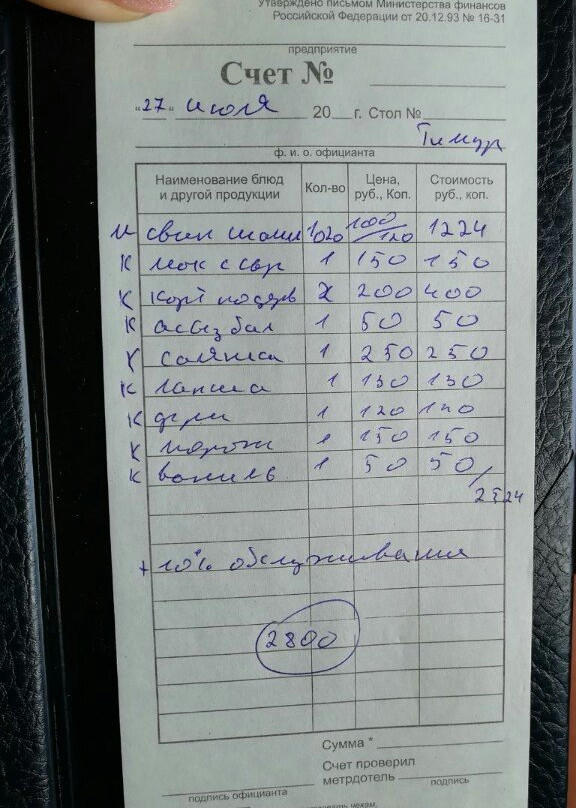 Утверждено письмом Министерства финансов
Российской Федерации от 20.12.93 № 16-31
предприятие
Счет №
"27" июля 20 г. Стол №
Тимур
ф. и. о. официанта
Наименование блюд и другой продукции Кол-во Цена, руб., Коп. Стоимость руб., коп.
свин шашл 1020 100/120 1224
К мок с сыр 1 150 150
К карт подерев 2 200 400
К 1 50 50
К солянка 1 250 250
К лапша 1 130 130
К фри 1 120 120
К морож 1 150 150
К ваниль 1 50 50
2524
+ 10% обслуживания
2800
Сумма *
Счет проверил
метрдотель
подпись официанта подпись